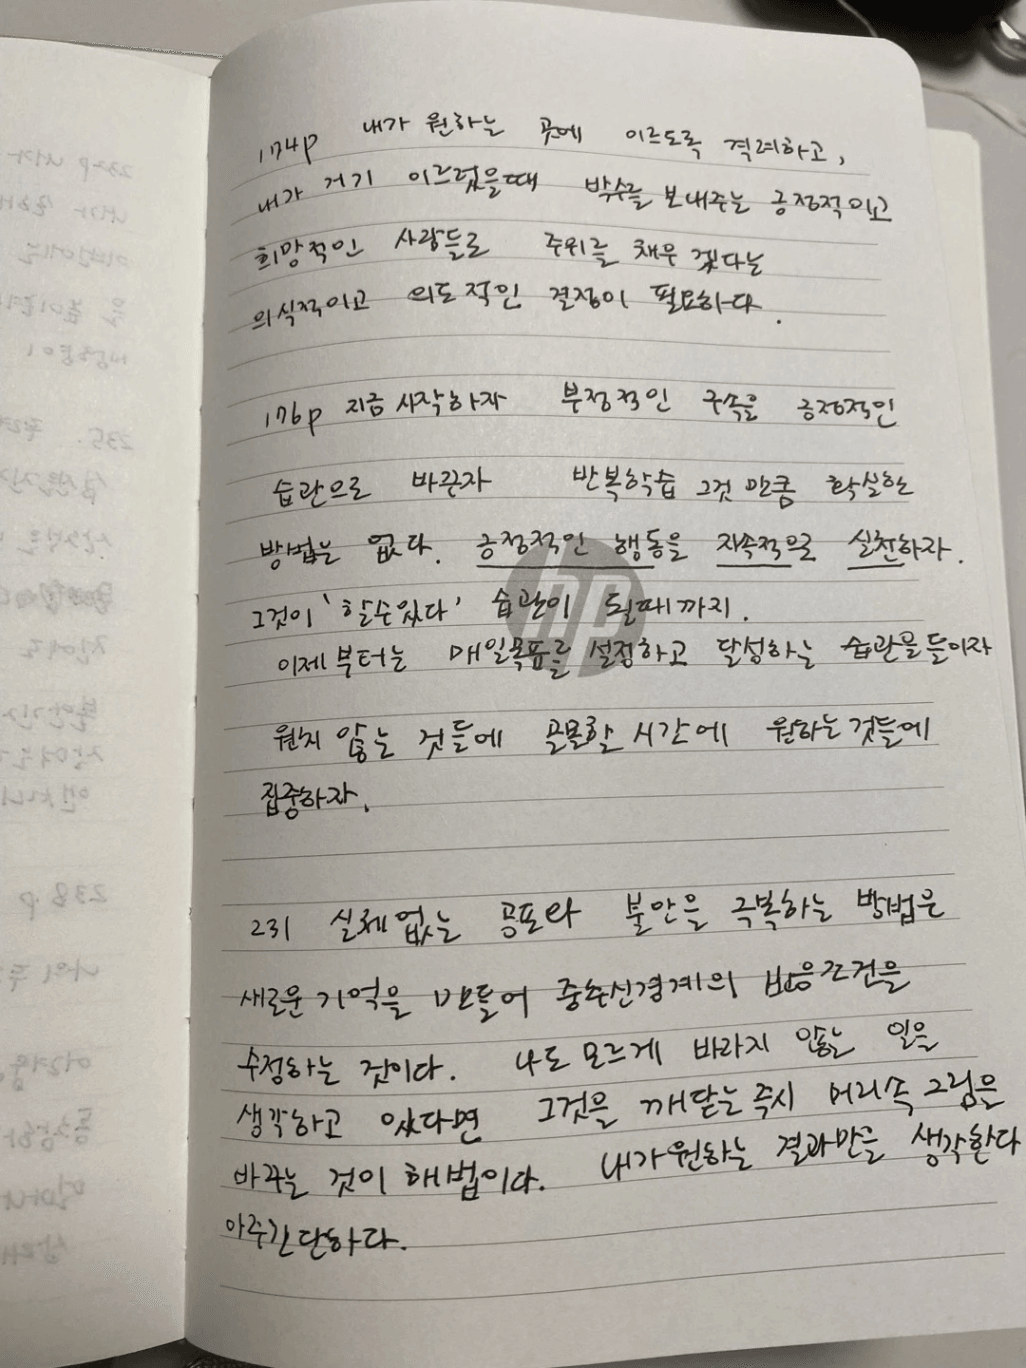 174p 내가 원하는 곳에 이르도록 격려하고,
내가 거기 이르렀을때 박수를 보내주는 긍정적이고
희망적인 사람들로 주위를 채우겠다는
의식적이고 의도적인 결정이 필요하다.
176p 지금 시작하자 부정적인 구속을 긍정적인
습관으로 바꾼자 반복학습 그것 만큼 확실한
방법은 없다. 긍정적인 행동을 지속적으로 실천하자.
그것이 '할수있다' 습관이 될때까지.
이제부터는 매일목표를 설정하고 달성하는 습관을들이자
원치 않는 것들에 골몰할 시간에 원하는것들에
집중하자.
231 실체없는 공포와 불안을 극복하는 방법은
새로운 기억을 만들어 중추신경계의 반응조건을
수정하는 것이다. 나도 모르게 바라지 않는 일을
생각하고 있다면 그것을 깨닫는즉시 머리속그림을
바꾸는 것이 해법이다. 내가원하는 결과만을 생각한다
아주간단하다.
hp